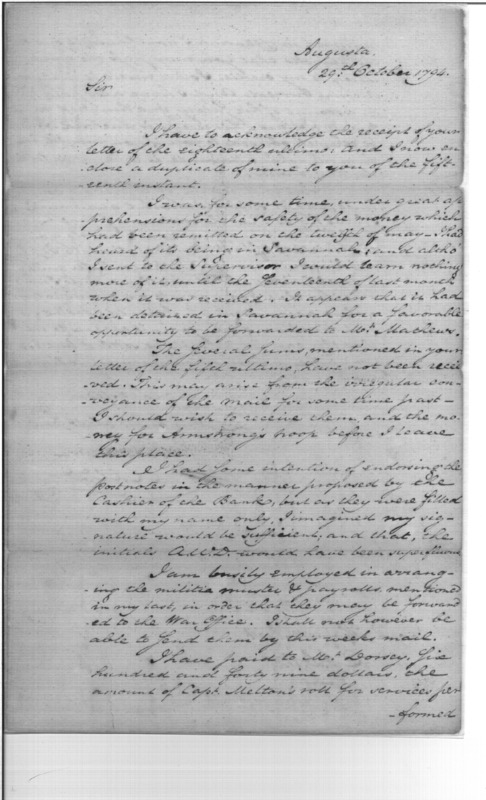 Augusta.
29th October 1794.
Sir
I have to acknowledge the receipt of your
letter of the eighteenth ultimo; and I now en
-close a duplicate of mine to you of the fift-
-eenth instant.
I was, for some time, under great ap
prehensions for the safety of the money which
had been remitted on the twelfth of may - I had
heard of its being in Savannah; and altho'
I sent to the Supervisor I could learn nothing
more of it, until the Seventeenth of last month
when it was received. It appears that it had
been detained in Savannah for a favorable
opportunity to be forwarded to Mr. Mathews.
The Several Sums, mentioned in your
letter of the fifth ultimo, have not been recei
ved. This may arise from the irregular con-
-veyance of the mail for some time past -
I should wish to receive them, and the mo-
-ney for Armstrong's troop before I leave
this place.
I had some intention of endorsing the
post notes in the manner proposed by the
Cashier of the Bank, but as they were filled
with my name only, I imagined my sig-
-nature would be Sufficient, and that, the
initials would have been superfluous
I am busily employed in arrang-
-ing the militia muster & payrolls, mentioned
in my last, in order that they may be forward
-ed to the War Office. I shall not however be
able to Send them by this weeks mail.
I have paid to Mr. Dorsey, Six
hundred and forty nine dollars, the
amount of Capt. Melton's roll for services per
-formed